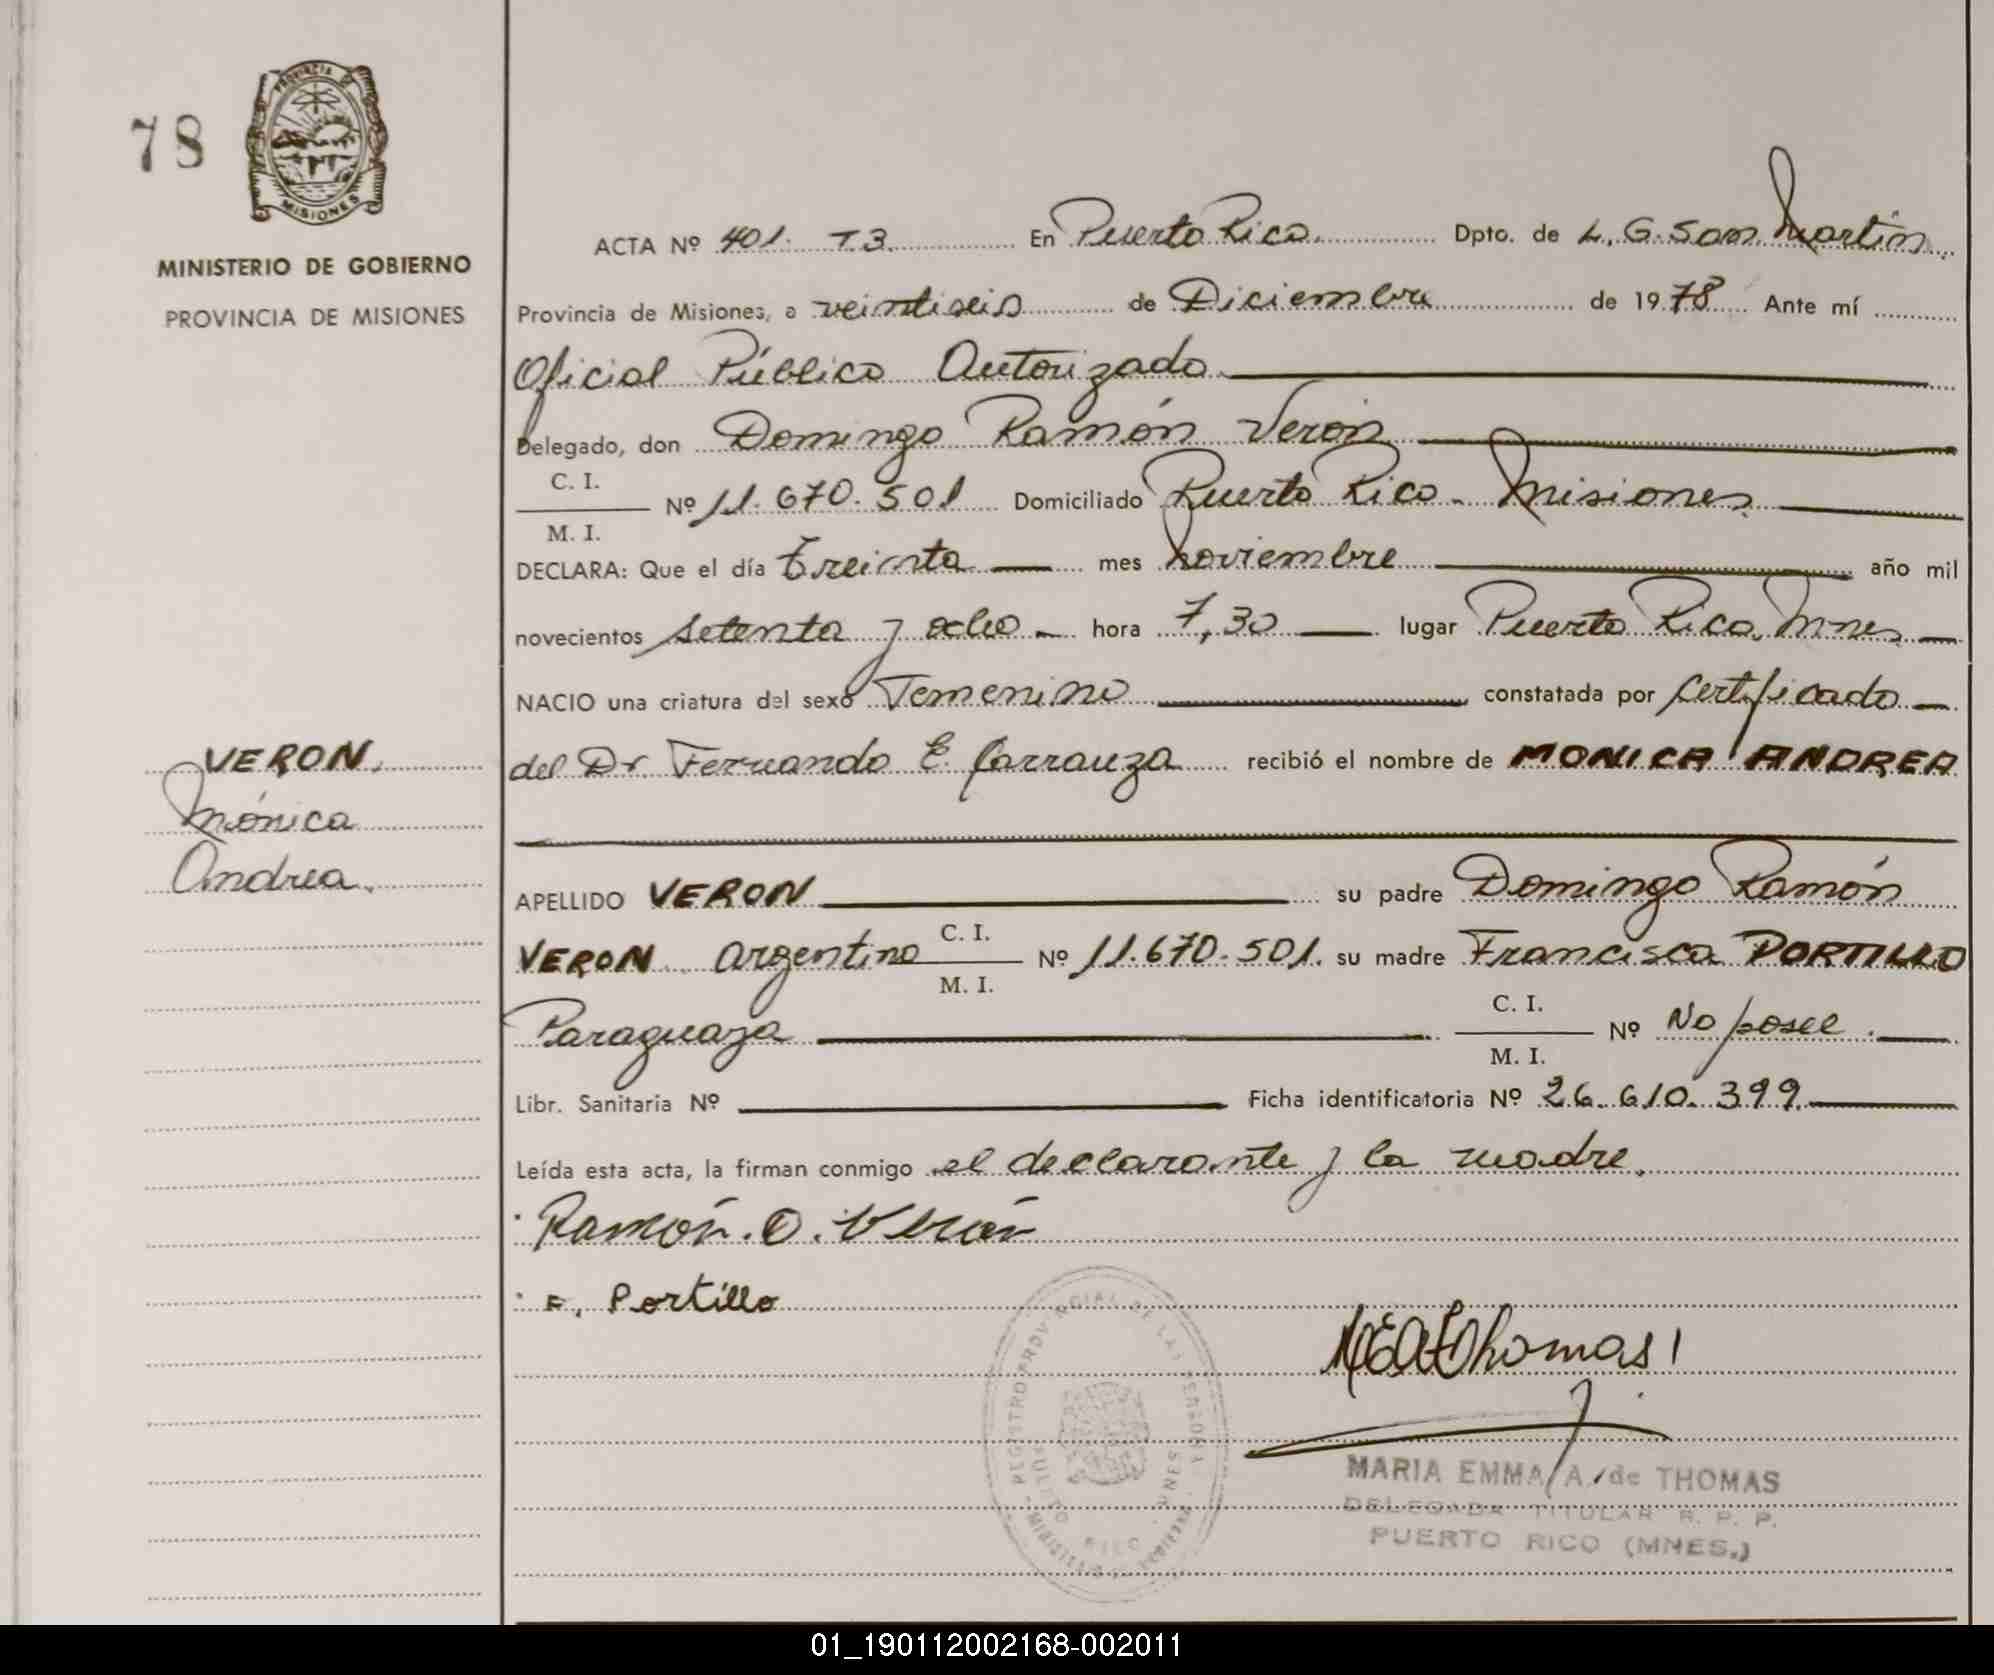 78
PROVINCIA DE
MISIONES
MINISTERIO DE GOBIERNO
PROVINCIA DE MISIONES
VERON.
Mónica
Andrea.
ACTA Nº 401. T3. En Puerto Rico. Dpto. de L. G. San Martín
Provincia de Misiones, a veintiseis de Diciembre de 1978 Ante mí
Oficial Público Autorizado
Delegado, don Domingo Ramón Verón
C. I.
Nº 11.670.501 Domiciliado Puerto Rico - Misiones
M. I.
DECLARA: Que el día treinta mes noviembre año mil
novecientos setenta y ocho hora 7,30 lugar Puerto Rico. Mnes.
NACIO una criatura del sexo Femenino constatada por certificado
del Dr Fernando E. Carranza recibió el nombre de MONICA ANDREA
APELLIDO VERON su padre Domingo Ramón
VERON argentino C. I. Nº 11.670.501. su madre Francisca PORTILLO
M. I.
Paraguaya C. I. Nº No posee.
M. I.
Libr. Sanitaria Nº Ficha identificatoria Nº 26.610.399
Leída esta acta, la firman conmigo el declarante y la madre.
Ramón. D. Verón
F. Portillo
REGISTRO PROVINCIAL DE LAS PERSONAS
PUERTO RICO MNES
MINISTERIO DE GOBIERNO
MEAdThomas
MARIA EMMA A. de THOMAS
DELEGADA TITULAR R. P. P.
PUERTO RICO (MNES.)
01_190112002168-002011